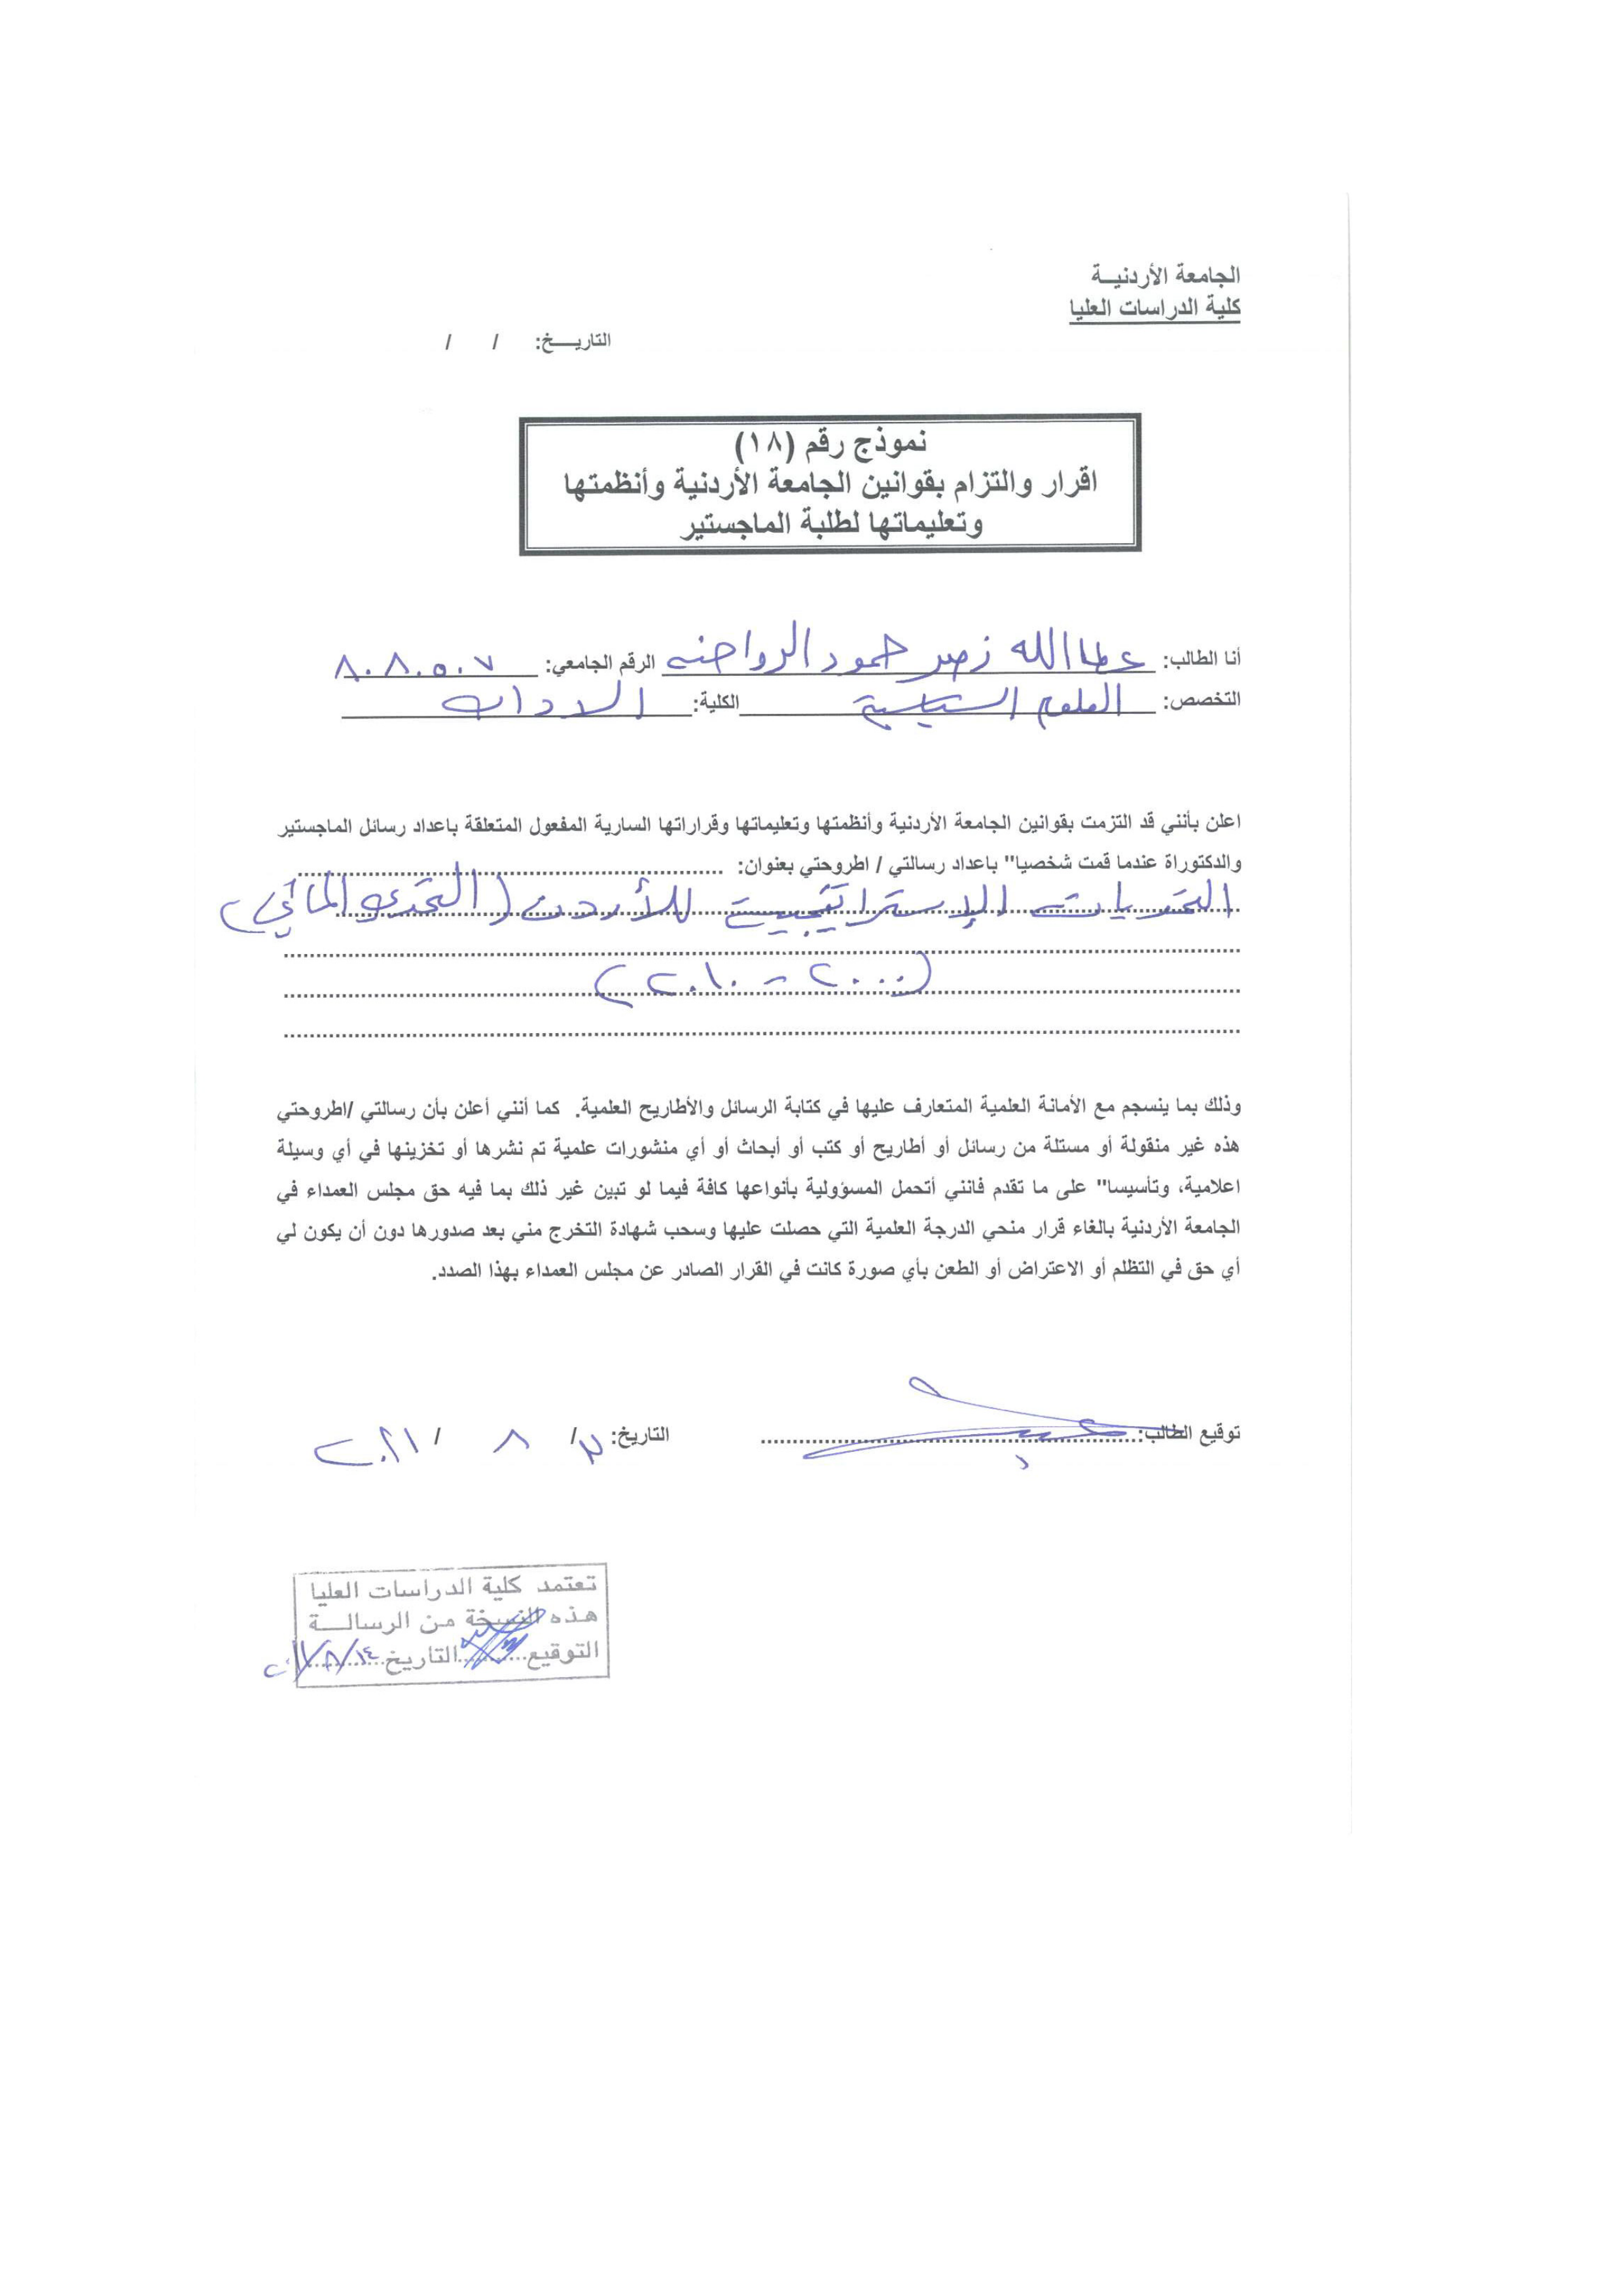 الجامعة الأردنيـــة
كلية الدراسات العليا
التاريـــخ: / /
نموذج رقم (١٨)
اقرار والتزام بقوانين الجامعة الأردنية وأنظمتها
وتعليماتها لطلبة الماجستير
أنا الطالب: عطاالله زصبر حمود الرواحنه الرقم الجامعي: ٨٠٨٠٥٠٧
التخصص: العلوم السياسية الكلية: الاداب
اعلن بأنني قد التزمت بقوانين الجامعة الأردنية وأنظمتها وتعليماتها وقراراتها السارية المفعول المتعلقة باعداد رسائل الماجستير
والدكتوراة عندما قمت شخصيا" باعداد رسالتي / اطروحتي بعنوان:
التحديات الإستراتيجية للأردن (التحدي المائي)
(٢٠٠٠ - ٢٠١٠)
وذلك بما ينسجم مع الأمانة العلمية المتعارف عليها في كتابة الرسائل والأطاريح العلمية. كما أنني أعلن بأن رسالتي /اطروحتي
هذه غير منقولة أو مستلة من رسائل أو أطاريح أو كتب أو أبحاث أو أي منشورات علمية تم نشرها أو تخزينها في أي وسيلة
اعلامية، وتأسيسا" على ما تقدم فانني أتحمل المسؤولية بأنواعها كافة فيما لو تبين غير ذلك بما فيه حق مجلس العمداء في
الجامعة الأردنية بالغاء قرار منحي الدرجة العلمية التي حصلت عليها وسحب شهادة التخرج مني بعد صدورها دون أن يكون لي
أي حق في التظلم أو الاعتراض أو الطعن بأي صورة كانت في القرار الصادر عن مجلس العمداء بهذا الصدد.
توقيع الطالب: التاريخ: / ٨ /
تعتمد كلية الدراسات العليا
هذه النسخة من الرسالـــة
التوقيع التاريخ ١٤/٨/